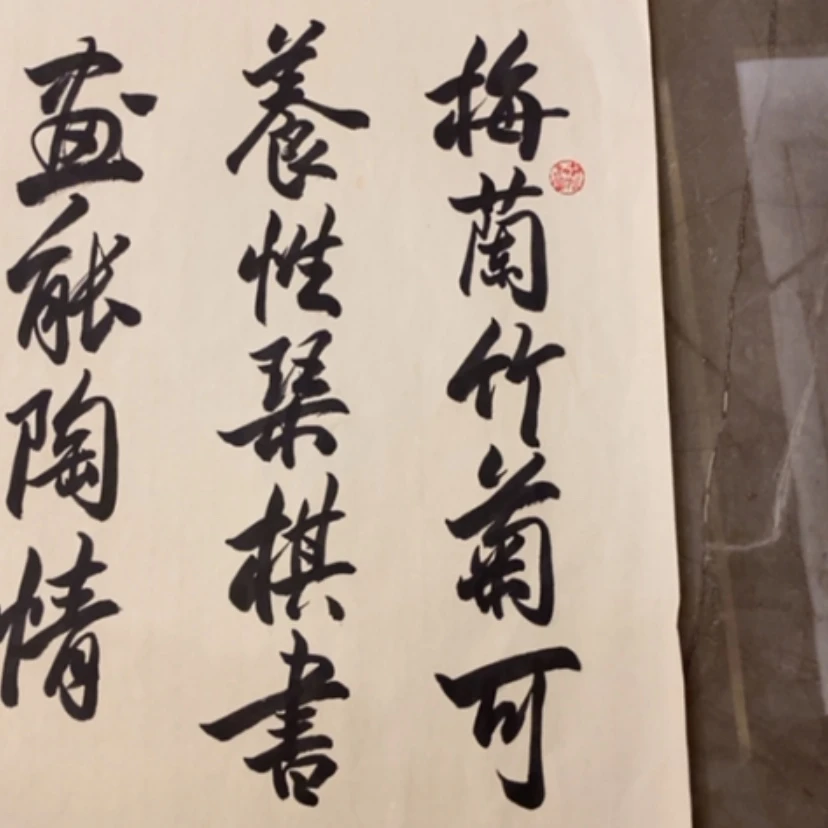 梅蘭竹菊可
養性琴棋書
畫能陶情